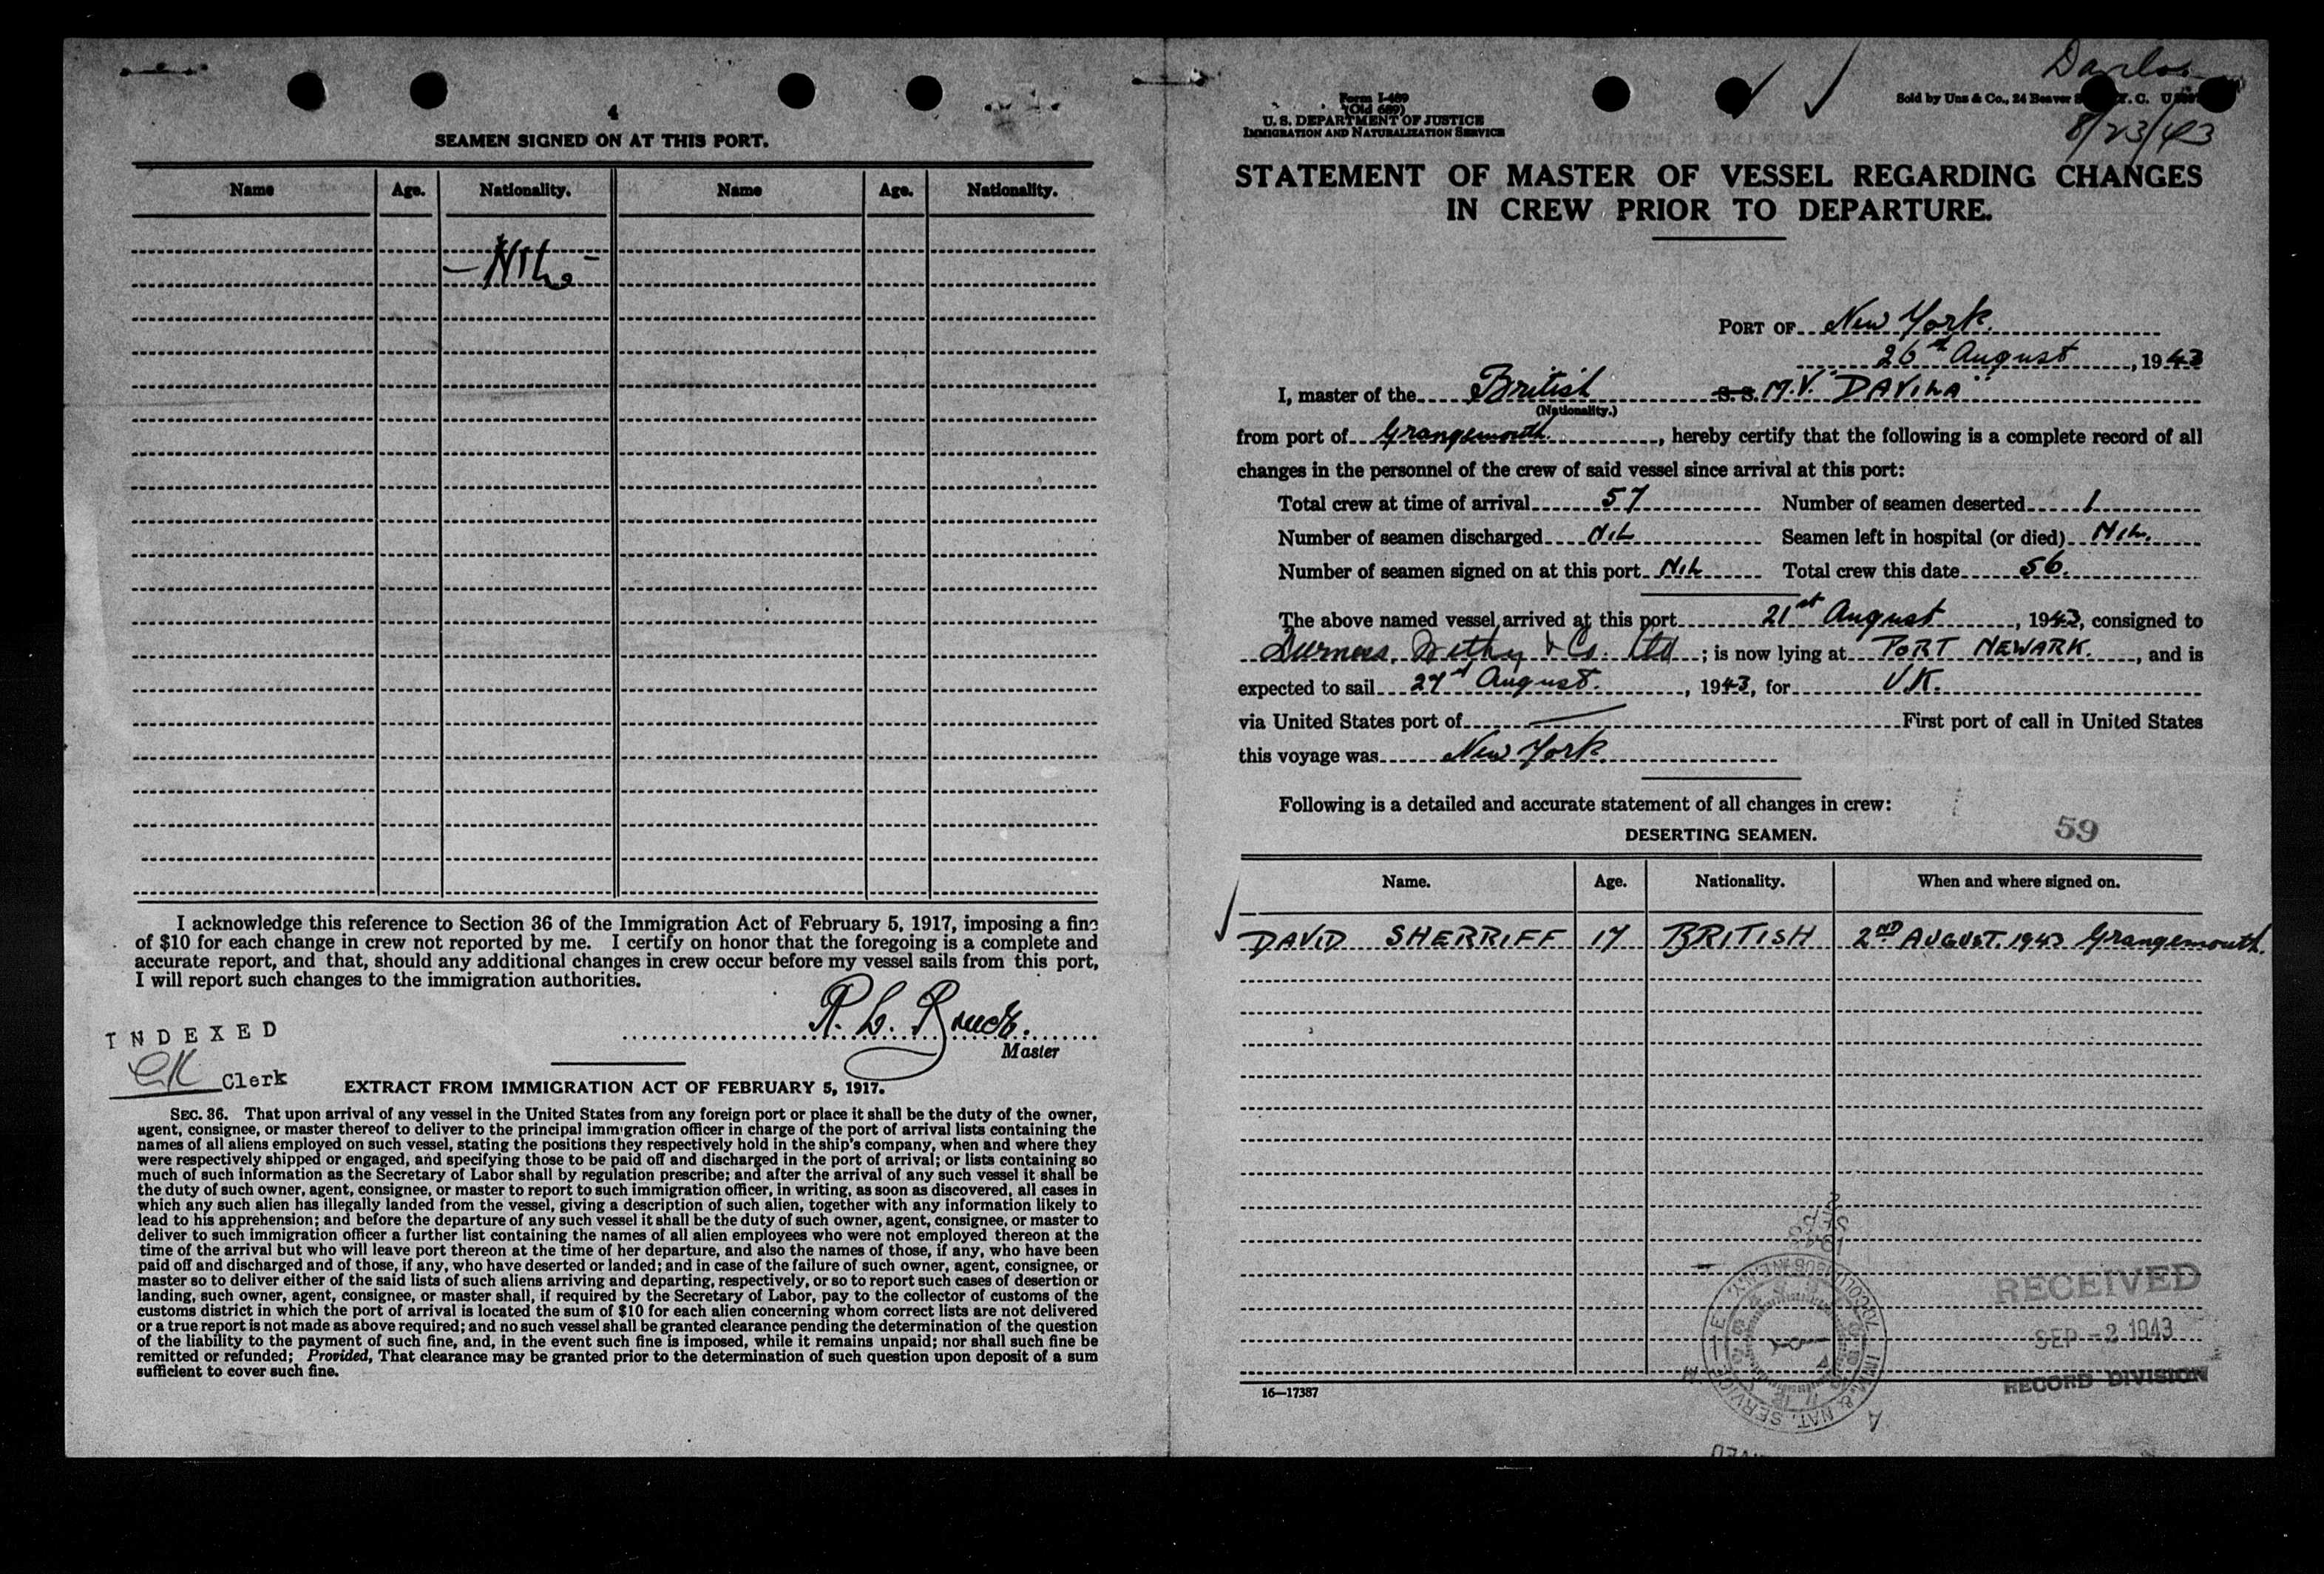 4
SEAMEN SIGNED ON AT THIS PORT.
Name Age. Nationality. Name Age. Nationality.
I acknowledge this reference to Section 36 of the Immigration Act of February 5, 1917, imposing a fine
of $10 for each change in crew not reported by me. I certify on honor that the foregoing is a complete and
accurate report, and that, should any additional changes in crew occur before my vessel sails from this port,
I will report such changes to the immigration authorities.
R. L.
Master
INDEXED
Clerk
EXTRACT FROM IMMIGRATION ACT OF FEBRUARY 5, 1917.
SEC. 36. That upon arrival of any vessel in the United States from any foreign port or place it shall be the duty of the owner,
agent, consignee, or master thereof to deliver to the principal immigration officer in charge of the port of arrival lists containing the
names of all aliens employed on such vessel, stating the positions they respectively hold in the ship's company, when and where they
were respectively shipped or engaged, and specifying those to be paid off and discharged in the port of arrival; or lists containing so
much of such information as the Secretary of Labor shall by regulation prescribe; and after the arrival of any such vessel it shall be
the duty of such owner, agent, consignee, or master to report to such immigration officer, in writing, as soon as discovered, all cases in
which any such alien has illegally landed from the vessel, giving a description of such alien, together with any information likely to
lead to his apprehension; and before the departure of any such vessel it shall be the duty of such owner, agent, consignee, or master to
deliver to such immigration officer a further list containing the names of all alien employees who were not employed thereon at the
time of the arrival but who will leave port thereon at the time of her departure, and also the names of those, if any, who have been
paid off and discharged and of those, if any, who have deserted or landed; and in case of the failure of such owner, agent, consignee, or
master so to deliver either of the said lists of such aliens arriving and departing, respectively, or so to report such cases of desertion or
landing, such owner, agent, consignee, or master shall, if required by the Secretary of Labor, pay to the collector of customs of the
customs district in which the port of arrival is located the sum of $10 for each alien concerning whom correct lists are not delivered
or a true report is not made as above required; and no such vessel shall be granted clearance pending the determination of the question
of the liability to the payment of such fine, and, in the event such fine is imposed, while it remains unpaid; nor shall such fine be
remitted or refunded; Provided, That clearance may be granted prior to the determination of such question upon deposit of a sum
sufficient to cover such fine.
Form I-489
(Old 689)
U. S. DEPARTMENT OF JUSTICE
IMMIGRATION AND NATURALIZATION SERVICE
Sold by Uns & Co., 24 Beaver
8/23/43
STATEMENT OF MASTER OF VESSEL REGARDING CHANGES
IN CREW PRIOR TO DEPARTURE.
PORT OF New York.
26th August, 1943
I, master of the British S. S. M.V. "DAVILA"
(Nationality.)
from port of Grangemouth, hereby certify that the following is a complete record of all
changes in the personnel of the crew of said vessel since arrival at this port:
Total crew at time of arrival 57 Number of seamen deserted 1
Number of seamen discharged NIL Seamen left in hospital (or died) NIL.
Number of seamen signed on at this port NIL Total crew this date 56.
The above named vessel arrived at this port 21st August, 1943, consigned to
Withy & Co. Ltd; is now lying at PORT NEWARK., and is
expected to sail 27th August., 1943, for U.K.
via United States port of — First port of call in United States
this voyage was New York.
Following is a detailed and accurate statement of all changes in crew:
59
DESERTING SEAMEN.
Name. Age. Nationality. When and where signed on.
DAVID SHERRIFF 17 BRITISH 2ND AUGUST. 1943 Grangemouth.
RECEIVED
SEP -2 1943
RECORD DIVISION
16—17387